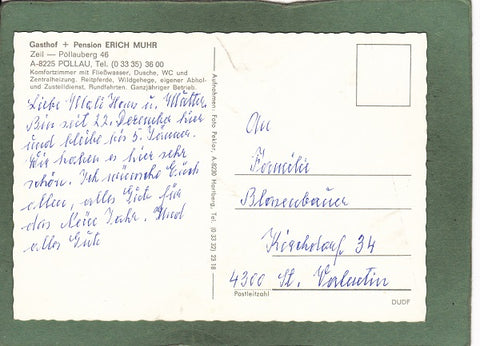 Gasthof + Pension ERICH MUHR
Zeil — Pöllauberg 46
A-8225 PÖLLAU, Tel. (0 33 35) 36 00
Komfortzimmer mit Fließwasser, Dusche, WC und
Zentralheizung. Reitpferde, Wildgehege, eigener Abhol-
und Zustelldienst, Rundfahrten. Ganzjähriger Betrieb.
Liebe Mali Hans u. Mutter
Bin seit 22. Dezember hier
und bleibe bis 5. Jänner.
Wir haben es hier sehr
schön. Ich wünsche Euch
allen, alles Gute für
das Neue Jahr. Und
alles Gute
Aufnahmen Foto Pekler, A-8230 Hartberg, Tel. (0 33 32) 23 18
An
Familie
Blasenbauer
Kirchdorf 34
4300 St. Valentin
Postleitzahl
DUDF